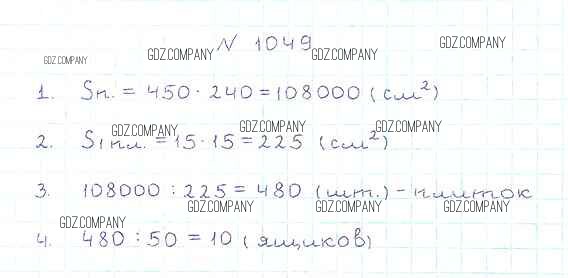 N 1049
GDZ.COMPANY GDZ.COMPANY GDZ.COMPANY GDZ.COMPANY
1. Sп. = 450 · 240 = 108000 (см²)
GDZ.COMPANY GDZ.COMPANY GDZ.COMPANY
2. S1 пл. = 15 · 15 = 225 (см²)
3. 108000 : 225 = 480 (шт.) - плиток
GDZ.COMPANY GDZ.COMPANY GDZ.COMPANY
GDZ.COMPANY
4. 480 : 50 = 10 (ящиков)